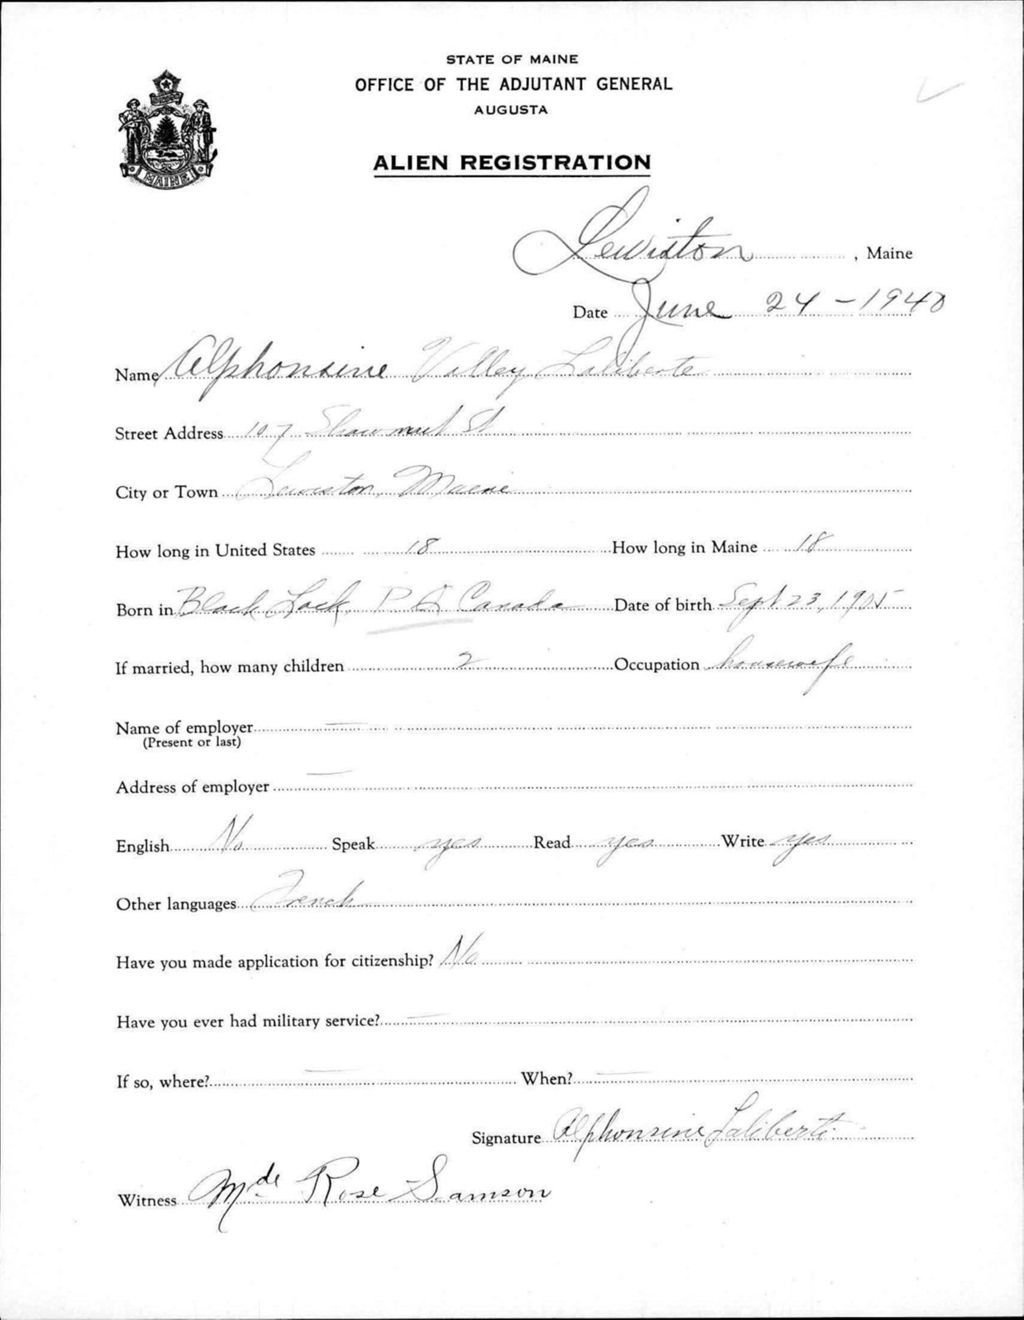 STATE OF MAINE
OFFICE OF THE ADJUTANT GENERAL
AUGUSTA
MAINE
ALIEN REGISTRATION
Lewiston, Maine
Date June 24 - 1940
Name Alphonsine Valley Laliberte
Street Address 107 Shawmut St
City or Town Lewiston, Maine
How long in United States 18 How long in Maine 18
Born in Black Lack, P Q Canada Date of birth Sept 23, 1905
If married, how many children 2 Occupation housewife
Name of employer —
(Present or last)
Address of employer —
English No Speak yes Read yes Write yes
Other languages French
Have you made application for citizenship? No
Have you ever had military service? —
If so, where? — When? —
Signature Alphonsine Laliberte
Witness Mde Rose Samson